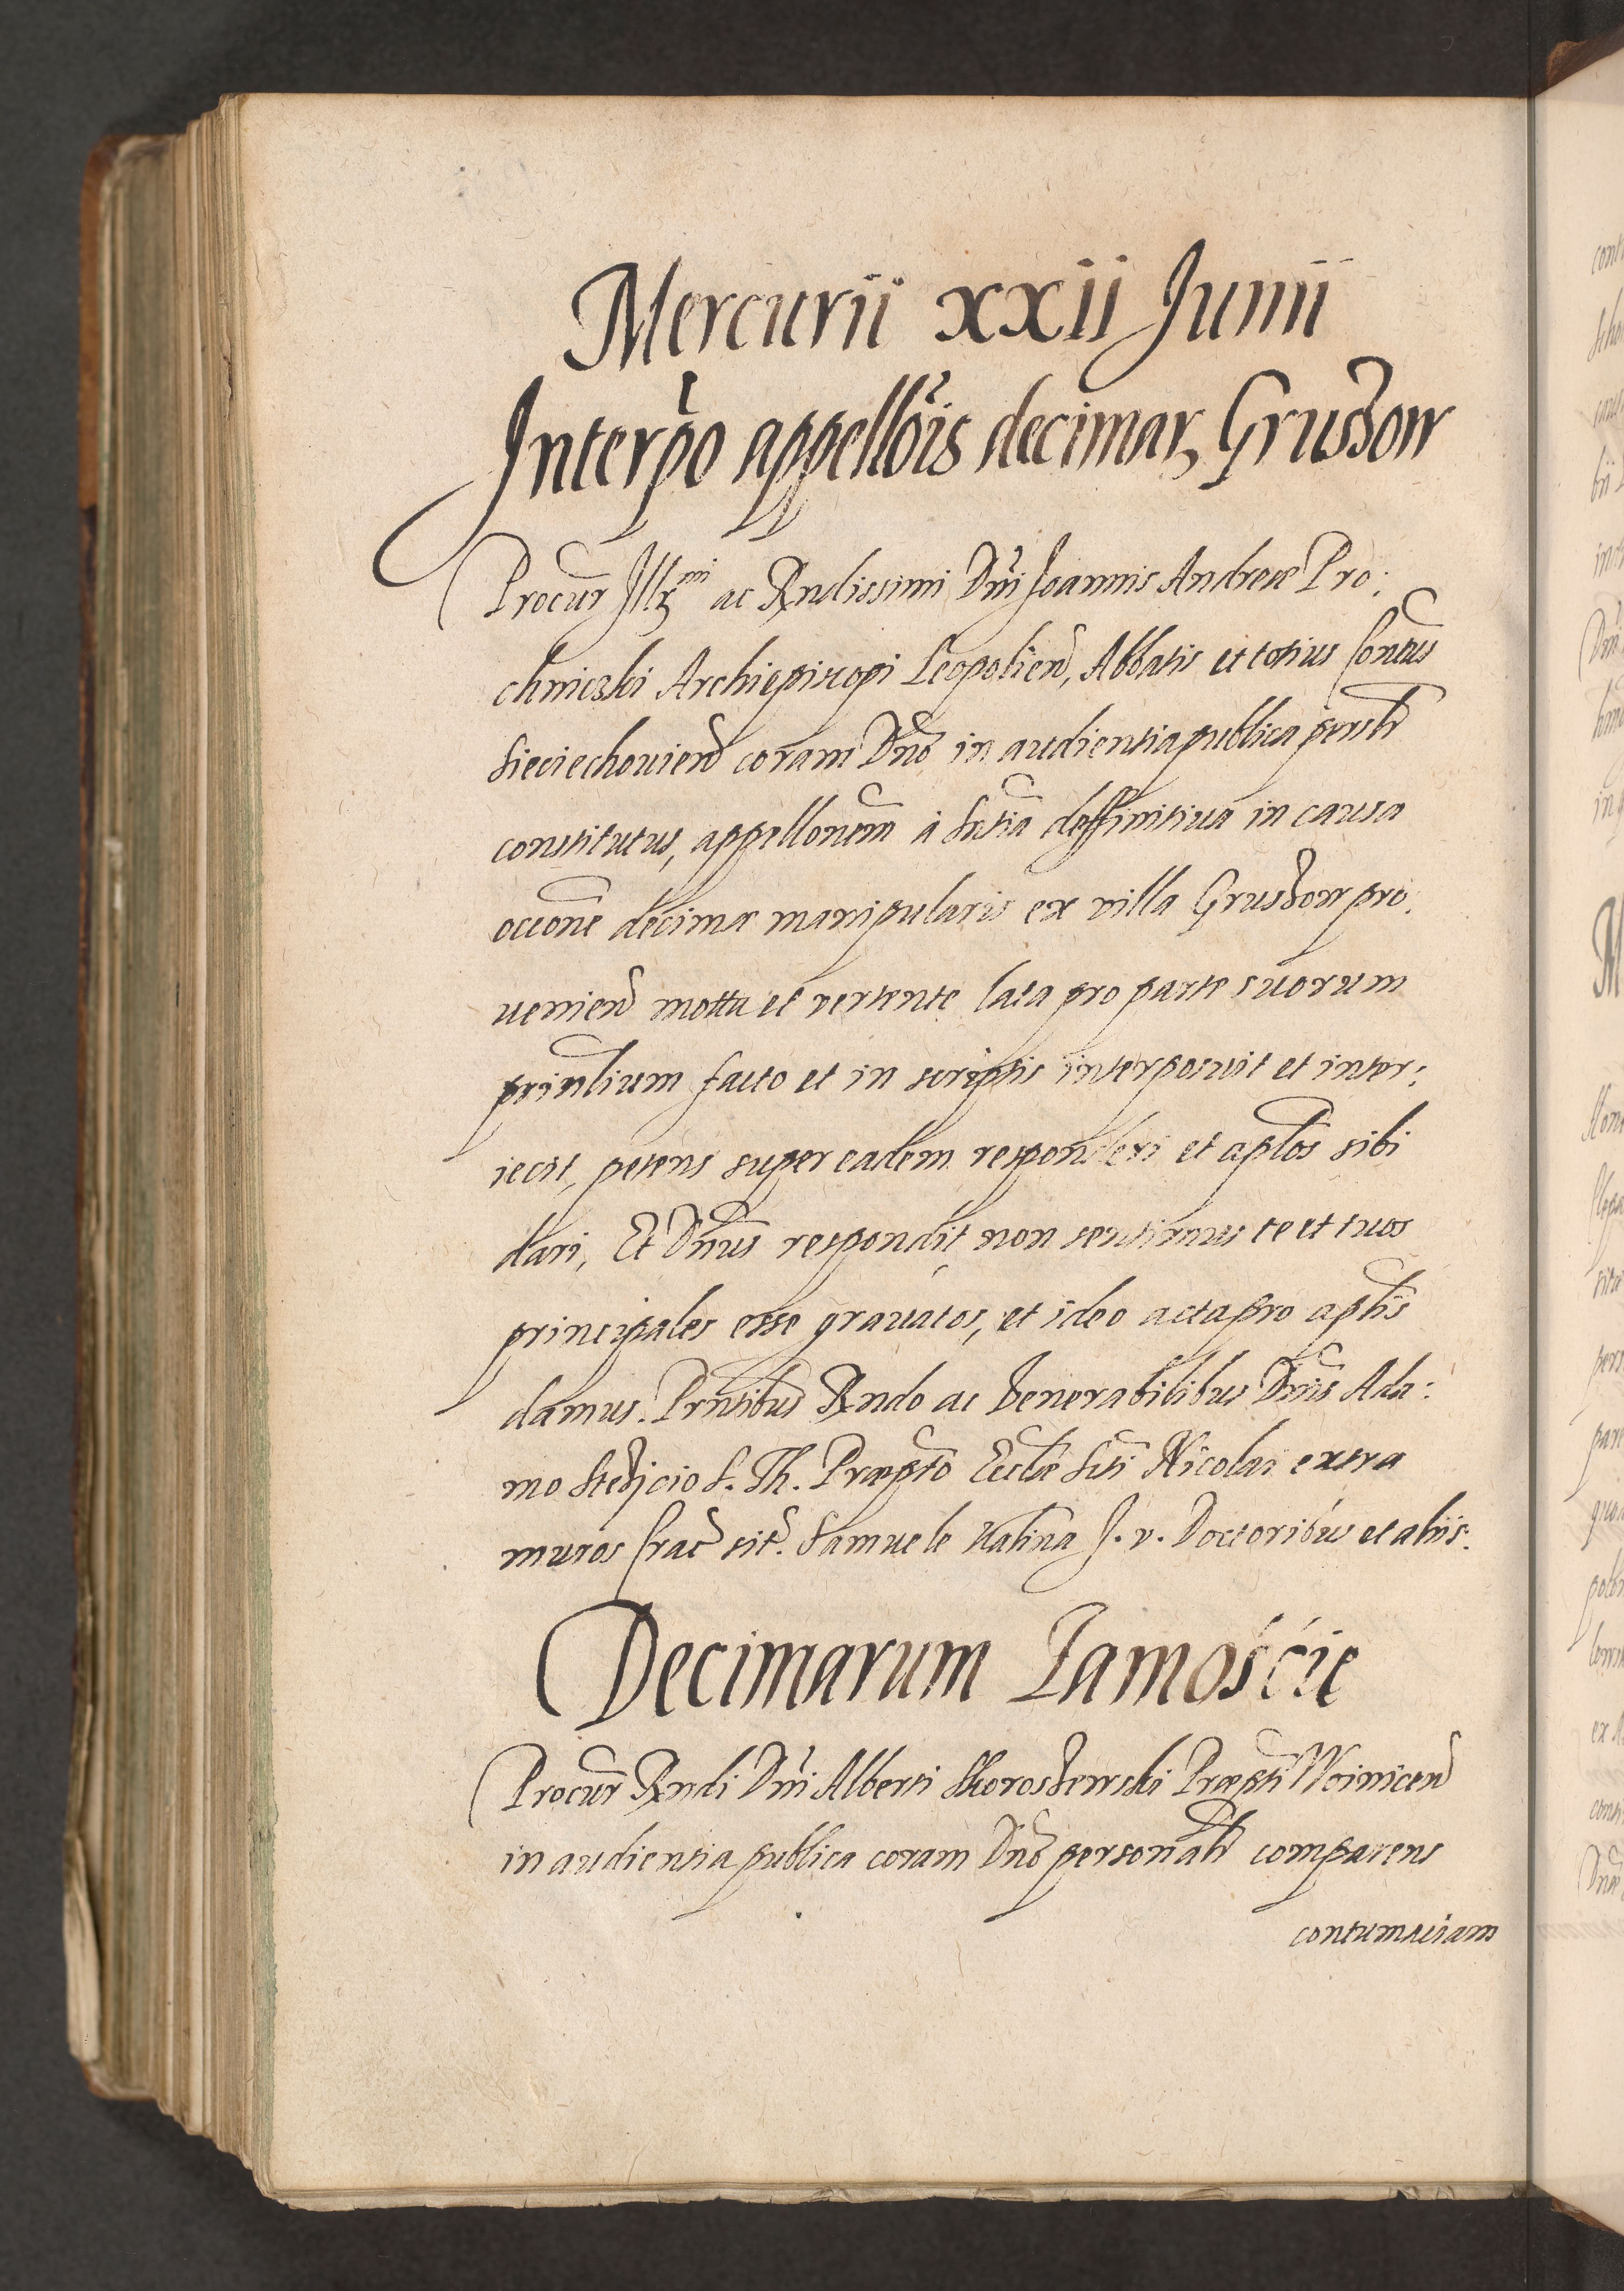 Mercurii xxii Junii
Interpo appellois decimar Gruszow
Procur Illr̃mi ac Rndissimi Dni Joannis Andreæ Pro:
chniczki Archiepiscopi Leopolien, Abbatis et totius Contus
Sieciechouien coram Dno in audientia publica psonlr
constitutus, appellonem à sntia deffinitiua in causa
occone decimæ manipularis ex villa Gruszow pro:
uenien motta et vertente lata pro parte suorum
prinlium facto et in scriptis interposuit et inter:
iecit, petens super eadem responderi et aplos sibi
dari, Et Dnus respondit, non sentimus te et tuos
principales esse grauatos, et ideo acta pro aplis
damus. Prntibus Rndo ac Venerabilibus Dnis Ada:
mo S. Th. Præpto Ecclæ Scti Nicolai extra
muros Crac sit. Samuele Kalina J. v. Doctoribus et aliis.
Decimarum Zamoście
Procur Rndi Dni Alberti Skoroszewski Præpti Woinicen
in audientia publica coram Dno personalr comparens
contumaciam